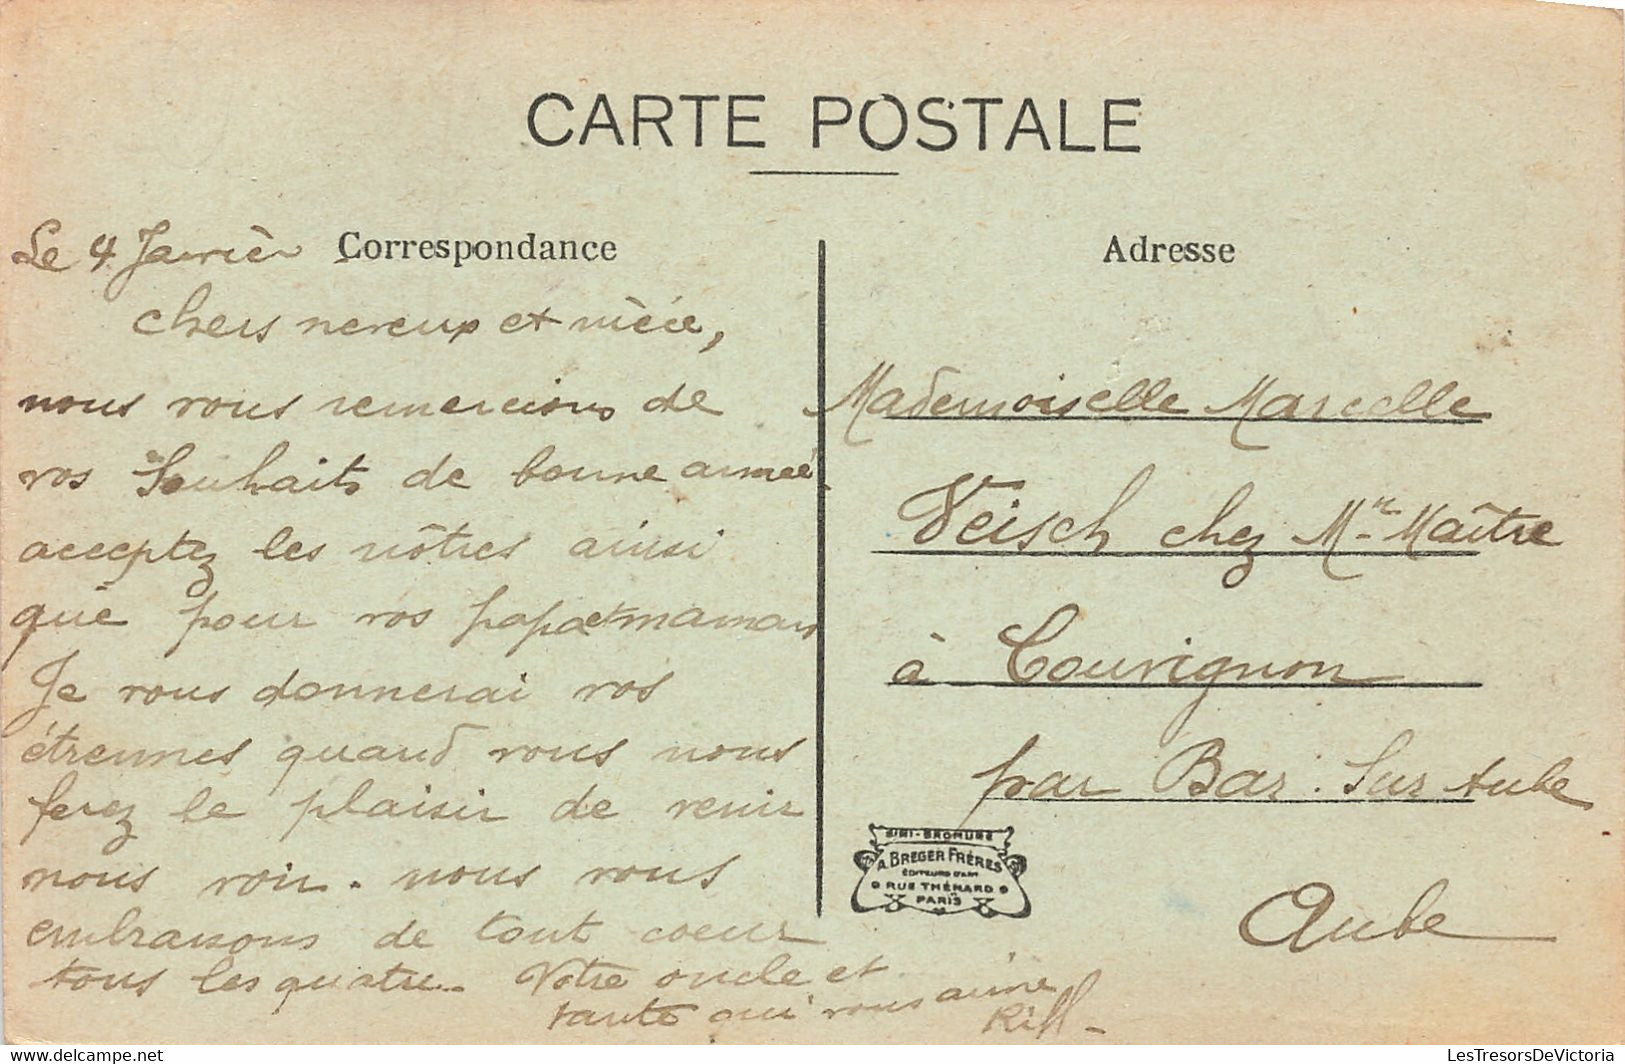 CARTE POSTALE
Correspondance
Le 4 Janvier
chers neveux et nièce,
nous vous remercions de
vos Souhaits de bonne année.
acceptez les nôtres ainsi
que pour vos papa et maman
Je vous donnerai vos
étrennes quand vous nous
ferez le plaisir de venir
nous voir. nous vous
embrassons de tout coeur
tous les quatre. Votre oncle et
tante qui vous aime
Adresse
Mademoiselle Marcelle
Veisch chez Mr Maître
à Couvignon
par Bar. Sur Aube
Aube
SIMI-BROMURE
A. BREGER FRÈRES
ÉDITEURS D'ART
9 RUE THÉNARD 9
PARIS
LesTresorsDeVictoria